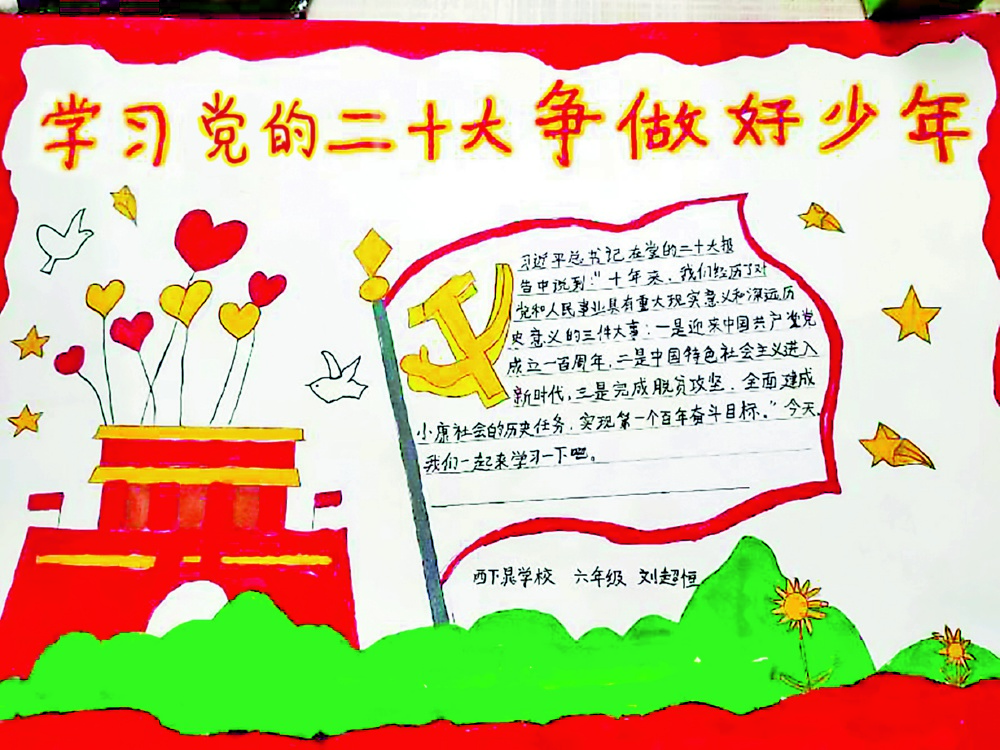 学习党的二十大争做好少年
习近平总书记在党的二十大报
告中说到:"十年来,我们经历了对
党和人民事业具有重大现实意义和深远历
史意义的三件大事:一是迎来中国共产党
成立一百周年,二是中国特色社会主义进入
新时代,三是完成脱贫攻坚、全面建成
小康社会的历史任务,实现第一个百年奋斗目标。"今天,
我们一起来学习一下吧。
西下晁学校 六年级 刘超恒